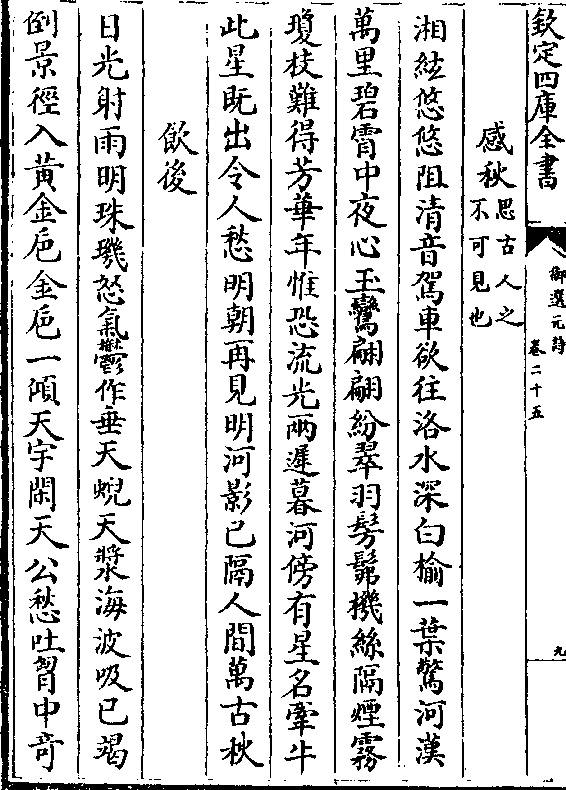 欽定四庫全書
御選元詩
卷二十五
九
感秋思古人之
不可見也
湘絃悠悠阻清音駕車欲往洛水深白榆一葉驚河漢
萬里碧霄中夜心玉鸞翩翩紛翠羽髣髴機絲隔煙霧
瓊枝難得芳華年惟恐流光兩遲暮河傍有星名牽牛
此星既出令人愁明朝再見明河影已隔人間萬古秋
飲後
日光射雨明珠璣怒氣鬱作垂天蜺天漿海波吸已竭
倒景徑入黃金巵金巵一傾天宇閑天公愁吐胷中竒